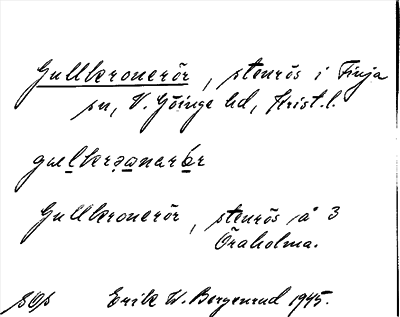 Gullkronerör, stenrös i Finja
sn, V. Göinge hd, Krist. l.
Gullkronerör, stenrös å 3
Öraholma.
Erik W. Bergenrud 1945.